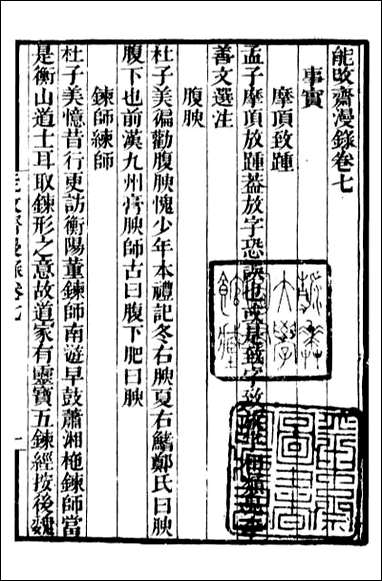 能改齋漫錄卷七
事實
摩頂致踵
孟子摩頂放踵蓋放字恐誤也或是致字致
善文選注
腹腴
杜子美徧勸腹腴愧少年本禮記冬右腴夏右鰭鄭氏曰腴
腹下也前漢九州膏腴師古曰腹下肥曰腴
鍊師練師
杜子美憶昔行更訪衡陽董鍊師南遊早鼓蕭湘柂鍊師當
是衡山道士耳取鍊形之意故道家有靈寶五鍊經按後魏
能改齋漫錄卷七